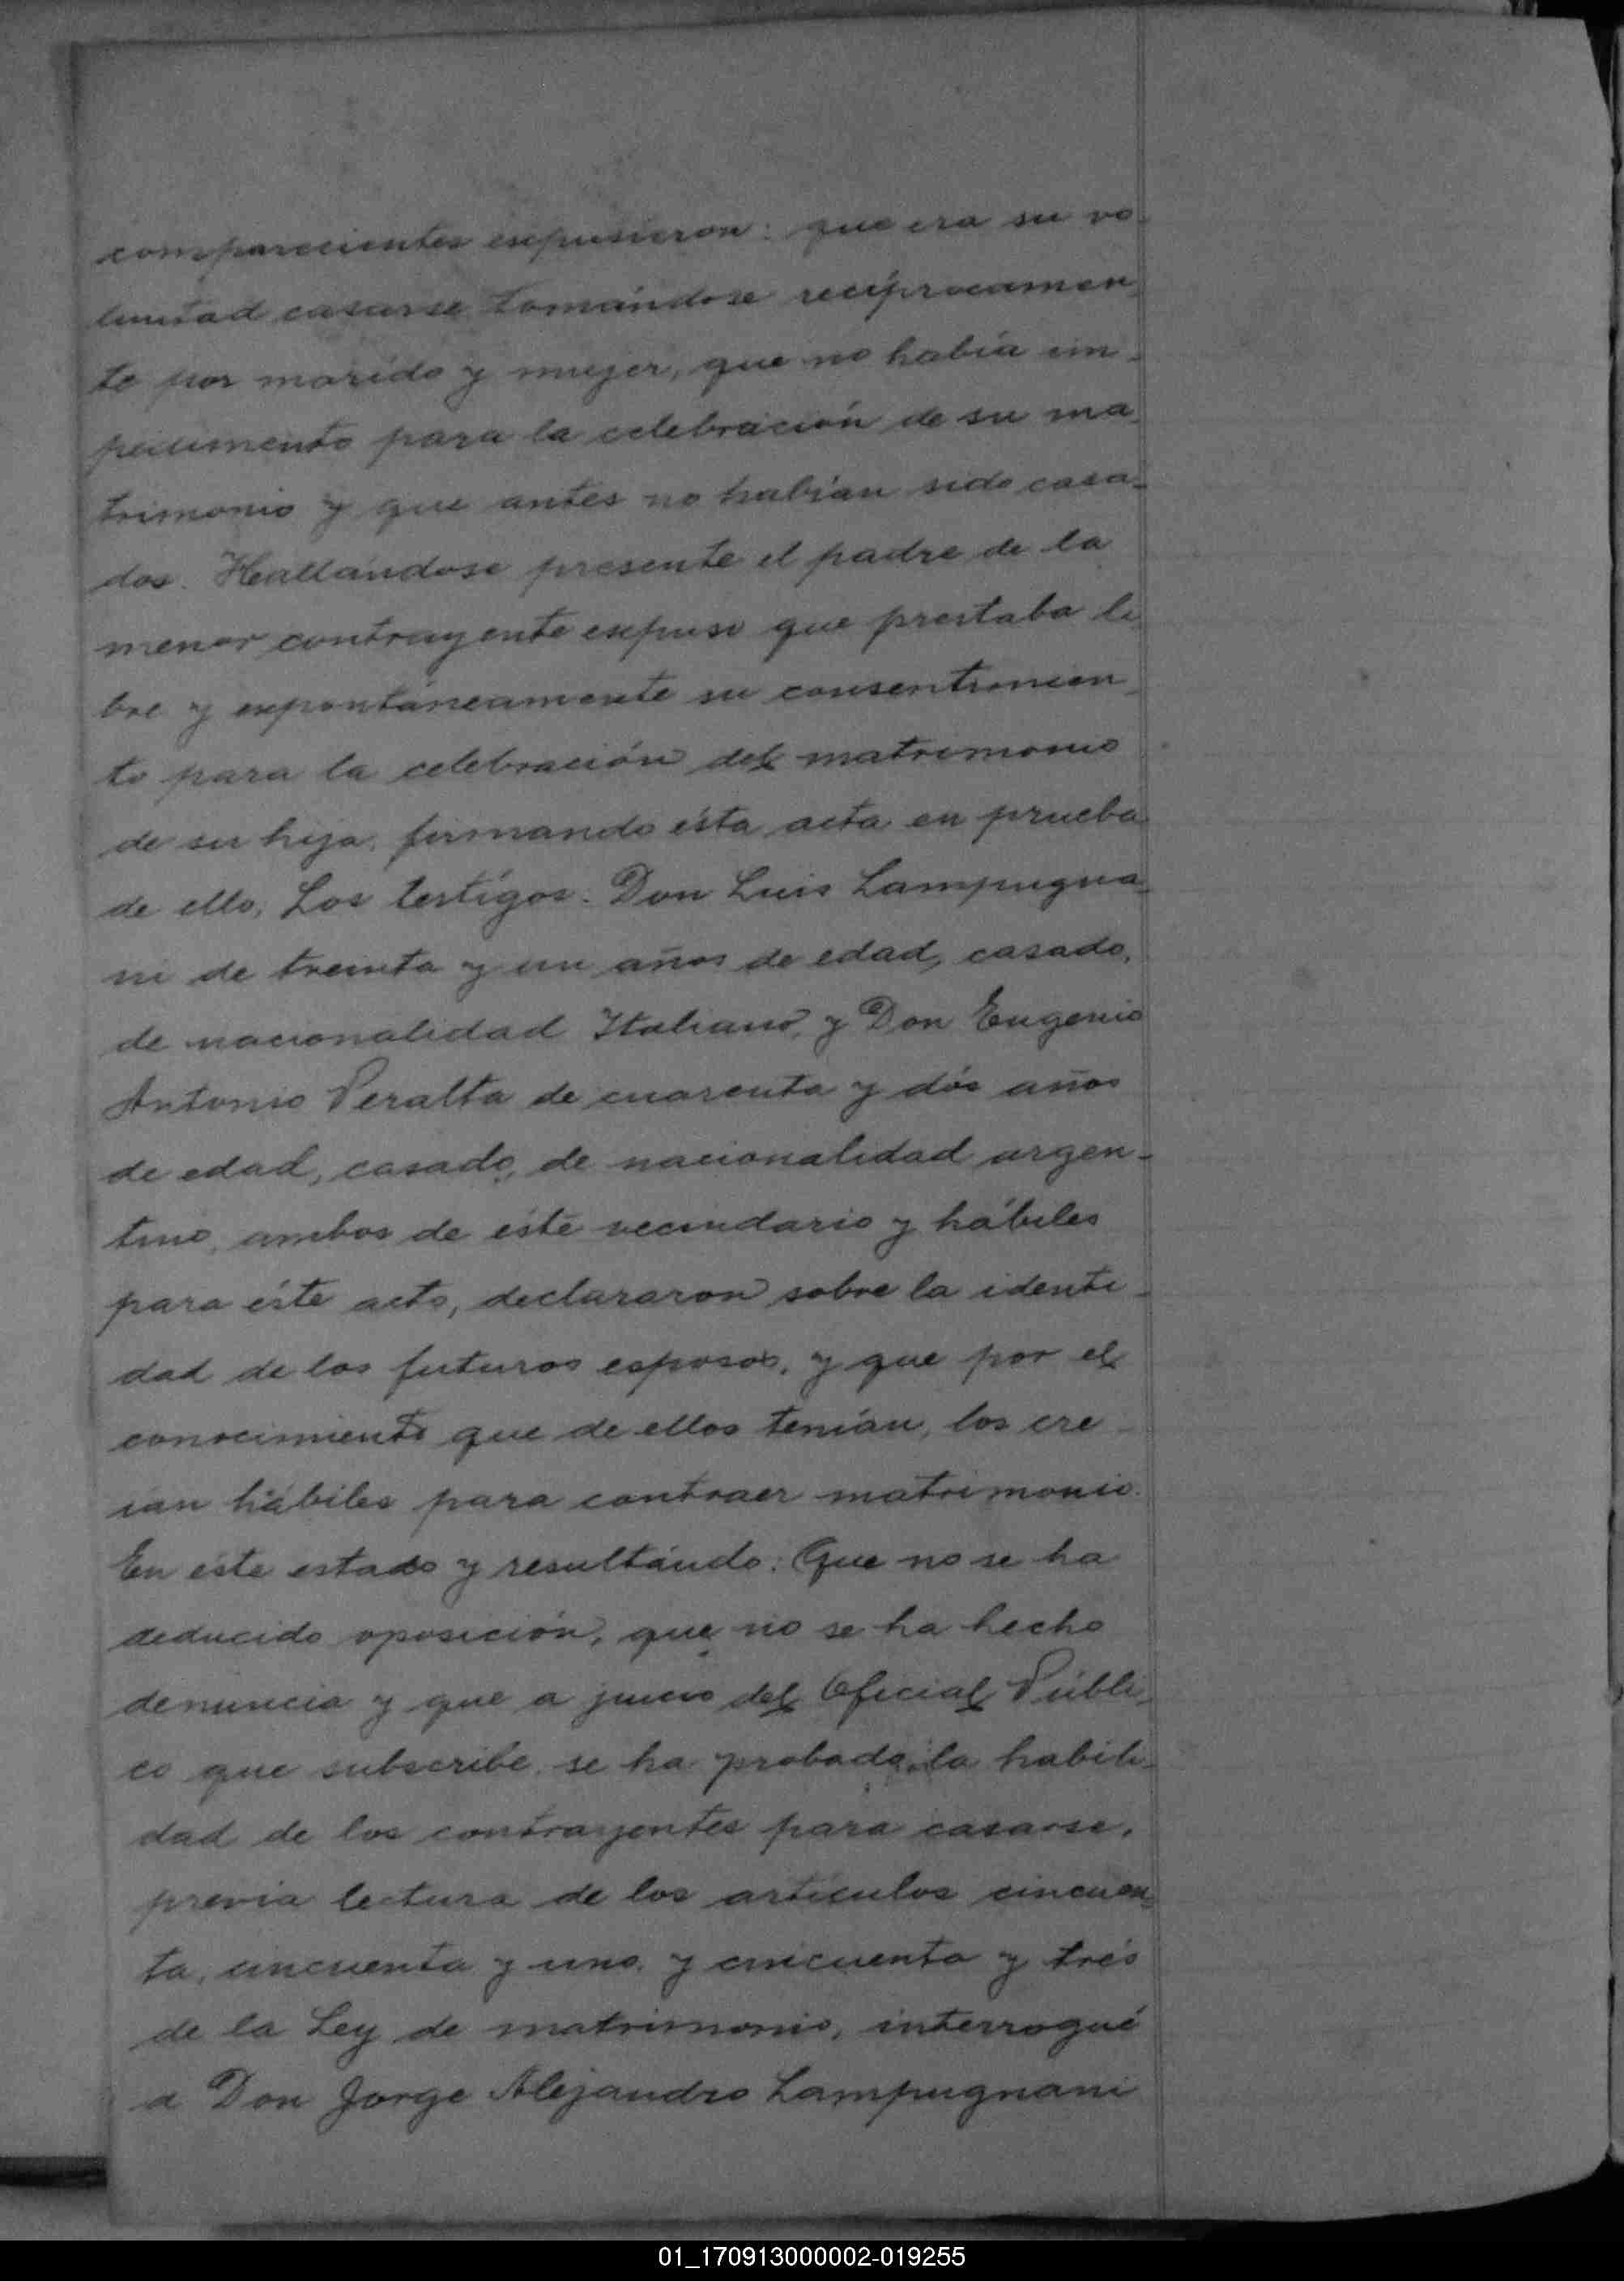 comparecientes expusieron: que era su vo-
luntad casarse tomándose recíprocamen-
te por marido y mujer, que no había im-
pedimento para la celebración de su ma-
trimonio y que antes no habían sido casa-
dos. Hallándose presente el padre de la
menor contrayente expuso que prestaba li-
bre y expontáneamente su consentimien-
to para la celebración del matrimonio
de su hija, firmando ésta acta en prueba
de ello, Los testigos: Don Luis Lampugna-
ni de treinta y un años de edad, casado,
de nacionalidad Italiano, y Don Eugenio
Antonio Peralta de cuarenta y dós años
de edad, casado, de nacionalidad argen-
tino, ambos de éste vecindario y hábiles
para éste acto, declararon sobre la identi-
dad de los futuros esposos, y que por el
conocimiento que de ellos tenían, los cre-
ian hábiles para contraer matrimonio.
En éste estado y resultándo: Que no se ha
deducido oposición, que no se ha hecho
denuncia y que a juicio del Oficial Públi-
co que subscribe se ha probado la habili-
dad de los contrayentes para casarse,
previa lectura de los artículos cincuen-
ta, cincuenta y uno, y cincuenta y trés
de la Ley de matrimonio, interrogué
a Don Jorge Alejandro Lampugnani
01_170913000002-019255